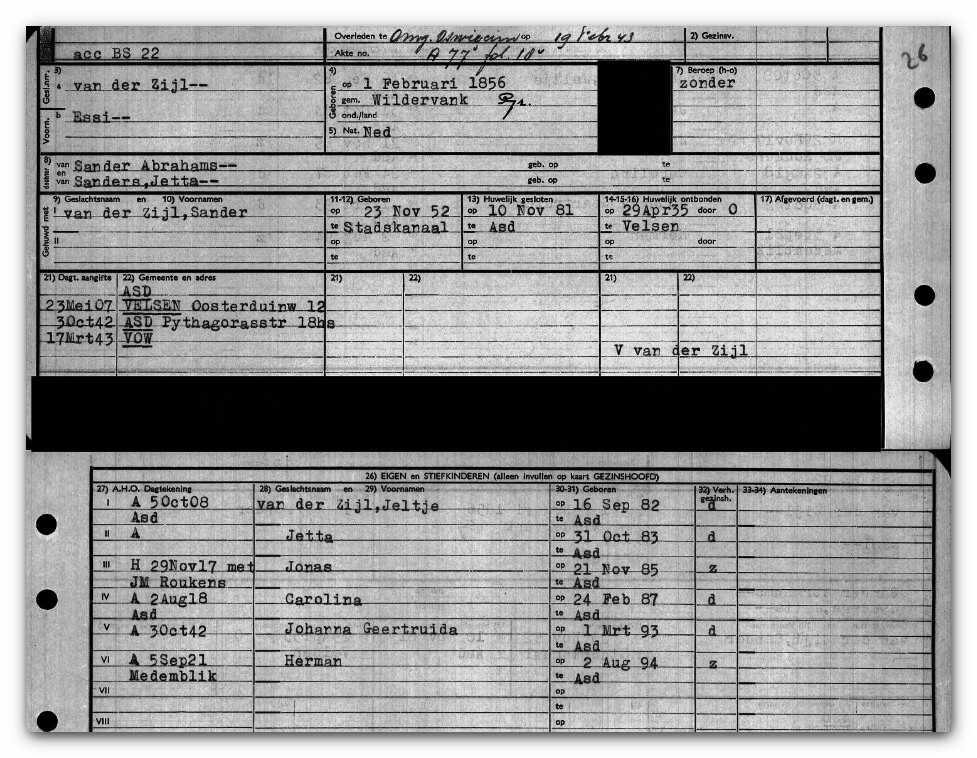 Overleden te Omg. Oswiecim op 19 Febr 43 2) Gezinsv.
acc BS 22 Akte no. A 77 fol. 10
26
3) 4) 7) Beroep (h-o)
Gesl.nr. a van der Zijl-- Geboren op 1 Februari 1856 zonder
gem. Wildervank
Voorn. b Essi-- ond./land
5) Nat. Ned
8) van Sander Abrahams-- geb. op te
en
van Sanders,Jetta-- geb. op te
9) Geslachtsnaam en 10) Voornamen 11-12) Geboren 13) Huwelijk gesloten 14-15-16) Huwelijk ontbonden 17) Afgevoerd (dagt. en gem.)
Gehuwd met I van der Zijl,Sander op 23 Nov 52 op 10 Nov 81 op 29Apr35 door O
te Stadskanaal te Asd te Velsen
II op op op door
te te te
21) Dagt. aangifte 22) Gemeente en adres 21) 22) 21) 22)
ASD
23Mei07 VELSEN Oosterduinw 12
3Oct42 ASD Pythagorasstr 18hs
17Mrt43 VOW
V van der Zijl
26) EIGEN en STIEFKINDEREN (alleen invullen op kaart GEZINSHOOFD)
27) A.H.O. Dagtekening 28) Geslachtsnaam en 29) Voornamen 30-31) Geboren 32) Verh. gezinsh. 33-34) Aantekeningen
I A 5Oct08 van der Zijl,Jeltje op 16 Sep 82 d
Asd te Asd
II A Jetta op 31 Oct 83 d
te Asd
III H 29Nov17 met Jonas op 21 Nov 85 z
JM Roukens te Asd
IV A 2Aug18 Carolina op 24 Feb 87 d
Asd te Asd
V A 3Oct42 Johanna Geertruida op 1 Mrt 93 d
te Asd
VI A 5Sep21 Herman op 2 Aug 94 z
Medemblik te Asd
VII op
te
VIII op